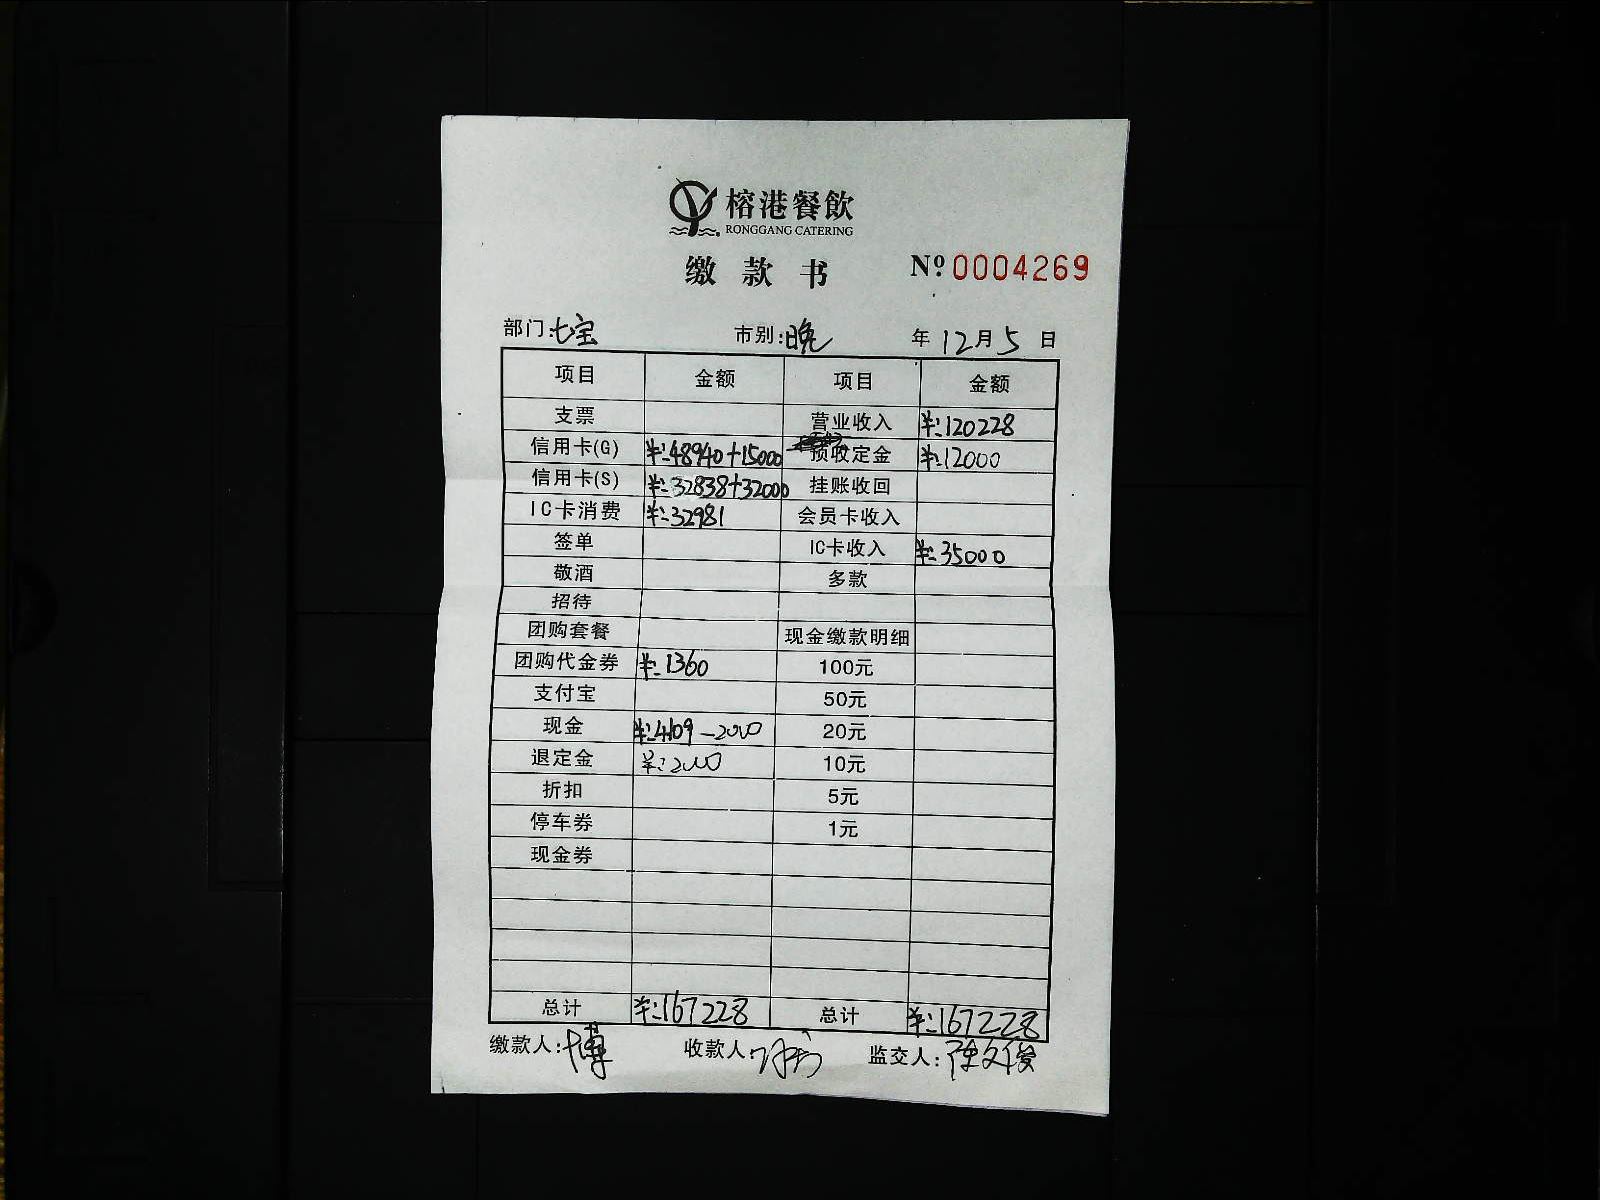 榕港餐飲
RONGGANG CATERING
缴款书 Nº 0004269
部门:七宝 市别:晚 年 12月 5 日
项目 金额 项目 金额
支票 营业收入 ¥:120228
信用卡(G) ¥:48940+15000 预收定金 ¥:12000
信用卡(S) ¥:32838+32000 挂账收回
IC卡消费 ¥:32981 会员卡收入
签单 IC卡收入 ¥:35000
敬酒 多款
招待
团购套餐 现金缴款明细
团购代金券 ¥:1360 100元
支付宝 50元
现金 ¥:4109-2000 20元
退定金 ¥:2000 10元
折扣 5元
停车券 1元
现金券
总计 ¥:167228 总计 ¥:167228
缴款人: 博 收款人: 监交人:陈文俊